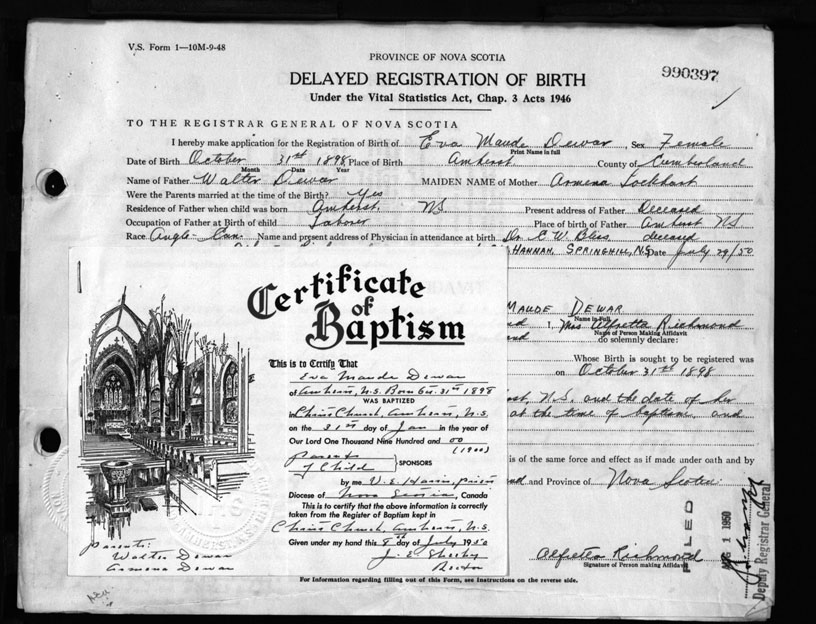 V.S. Form 1—10M-9-48
PROVINCE OF NOVA SCOTIA
990397
DELAYED REGISTRATION OF BIRTH
Under the Vital Statistics Act, Chap. 3 Acts 1946
TO THE REGISTRAR GENERAL OF NOVA SCOTIA
I hereby make application for the Registration of Birth of Eva Maude Dewar, Sex Female
Print Name in full
Date of Birth October 31st 1898 Place of Birth Amherst County of Cumberland
Month Date Year
Name of Father Walter Dewar MAIDEN NAME of Mother Armena Lockhart
Were the Parents married at the time of the Birth? Yes
Residence of Father when child was born Amherst, NS Present address of Father Deceased
Occupation of Father at Birth of child Laborer Place of birth of Father Amherst NS
Race Anglo-Can. Name and present address of Physician in attendance at birth Dr C W Bliss deceased
HANNAH, SPRINGHILL, N.S. Date July 29/50
Certificate
of
Baptism
This is to Certify That
Eva Maude Dewar
of Amherst, N.S. Born Oct. 31st 1898
WAS BAPTIZED
in Christ Church, Amherst, N.S.
on the 31st day of Jan in the year of
Our Lord One Thousand Nine Hundred and 00
(1900)
Parents
of Child } SPONSORS
by me V. E. Harris, priest
Diocese of Nova Scotia, Canada
This is to certify that the above information is correctly
taken from the Register of Baptism kept in
Christ Church, Amherst, N.S.
Given under my hand this 8th day of July 1950
J. E.
Rector
Parents:
Walter Dewar
Armena Dewar
MAUDE DEWAR
Name in Full
I, Mrs Alfretta Richmond
Name of Person Making Affidavit
do solemnly declare:
Whose Birth is sought to be registered was
on October 31st 1898
N.S. and the date of her
at the time of baptism, and
is of the same force and effect as if made under oath and by
and Province of Nova Scotia
FILED
AUG 1 1950
Deputy Registrar General
Alfretta Richmond
Signature of Person making Affidavit
For Information regarding filling out of this Form, see Instructions on the reverse side.